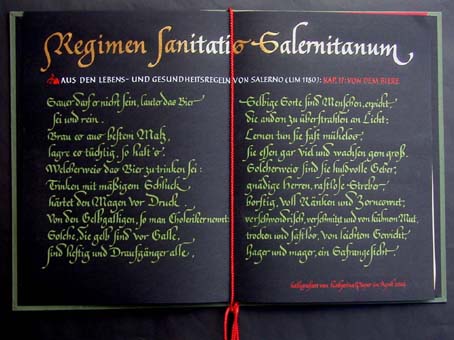 Regimen Sanitatis Salernitanum
AUS DEN LEBENS- UND GESUNDHEITSREGELN VON SALERNO (UM 1180): KAP. 17: VON DEM BIERE
Sauer darf er nicht sein, lauter das Bier
sei und rein.
Brau es aus bestem Malz,
lagre es tüchtig, so halt's.
Welcherweis das Bier zu trinken sei:
Trinken mit mäßigem Schluck
härtet den Magen vor Druck
Von den Gelbgalligen, so man Choleriker nennt:
Solche, die gelb sind vor Galle,
sind heftig und Draufgänger alle,
Selbige Sorte sind Menschen, erpicht,
die andern zu überstrahlen an Licht:
Lernen tun sie fast mühelos,
sie essen gar viel und wachsen gem groß.
Solcherweis sind sie huldvolle Geber,
gnädige Herren, rastlose Streber
borstig, voll Ränken und Zorneswut,
verschwendrisch, verschmitzt und von kühnem Mut,
trocken und saftlos, von leichtem Gewicht
hager und mager, ein Safrangesicht.
kalligrafiert von Katharina Pieper im April